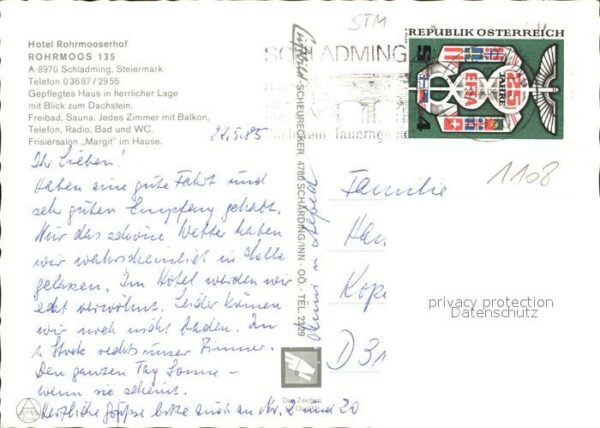 Hotel Rohrmooserhof
ROHRMOOS 135
A-8970 Schladming, Steiermark
Telefon 03687/2955
Gepflegtes Haus in herrlicher Lage
mit Blick zum Dachstein.
Freibad, Sauna. Jedes Zimmer mit Balkon,
Telefon, Radio, Bad und WC.
Frisiersalon „Margit" im Hause.
22.5.85
Ihr Lieben!
Haben eine gute Fahrt und
sehr guten Empfang gehabt.
Nur das schöne Wetter haben
wir wahrscheinlich in Halle
gelassen. Im Hotel werden wir
echt verwöhnt. Leider können
wir noch nicht baden. Im
1. Stock rechts unser Zimmer.
Den ganzen Tag Sonne –
wenn sie scheint.
Herzliche Grüße bitte auch an Nr. 2 und 20
Luftbild SCHEURECKER 4780 SCHÄRDING/INN - OÖ. - TEL 2329
STM
SCHLADMING
Tauerngebiet
REPUBLIK ÖSTERREICH
S 4
25
JAHRE
EFTA
1108
Familie
Han
Kope
D 31
privacy protection
Datenschutz
Das Zeichen